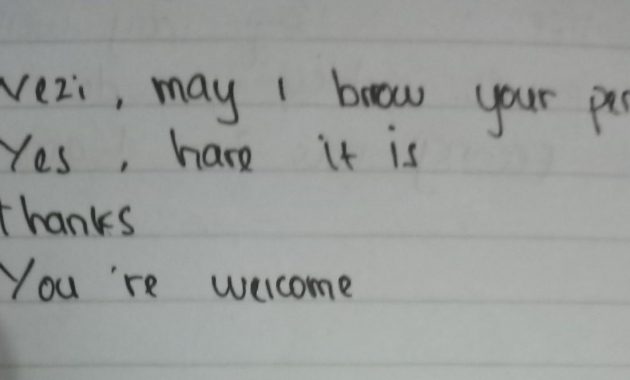 Vezi, may I brrow your per
Yes, hare it is
thanks
You're welcome